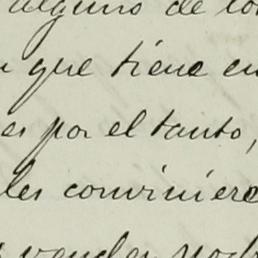 alguno de los
que tiene en
es por el tanto,
les conviniere
vender podr